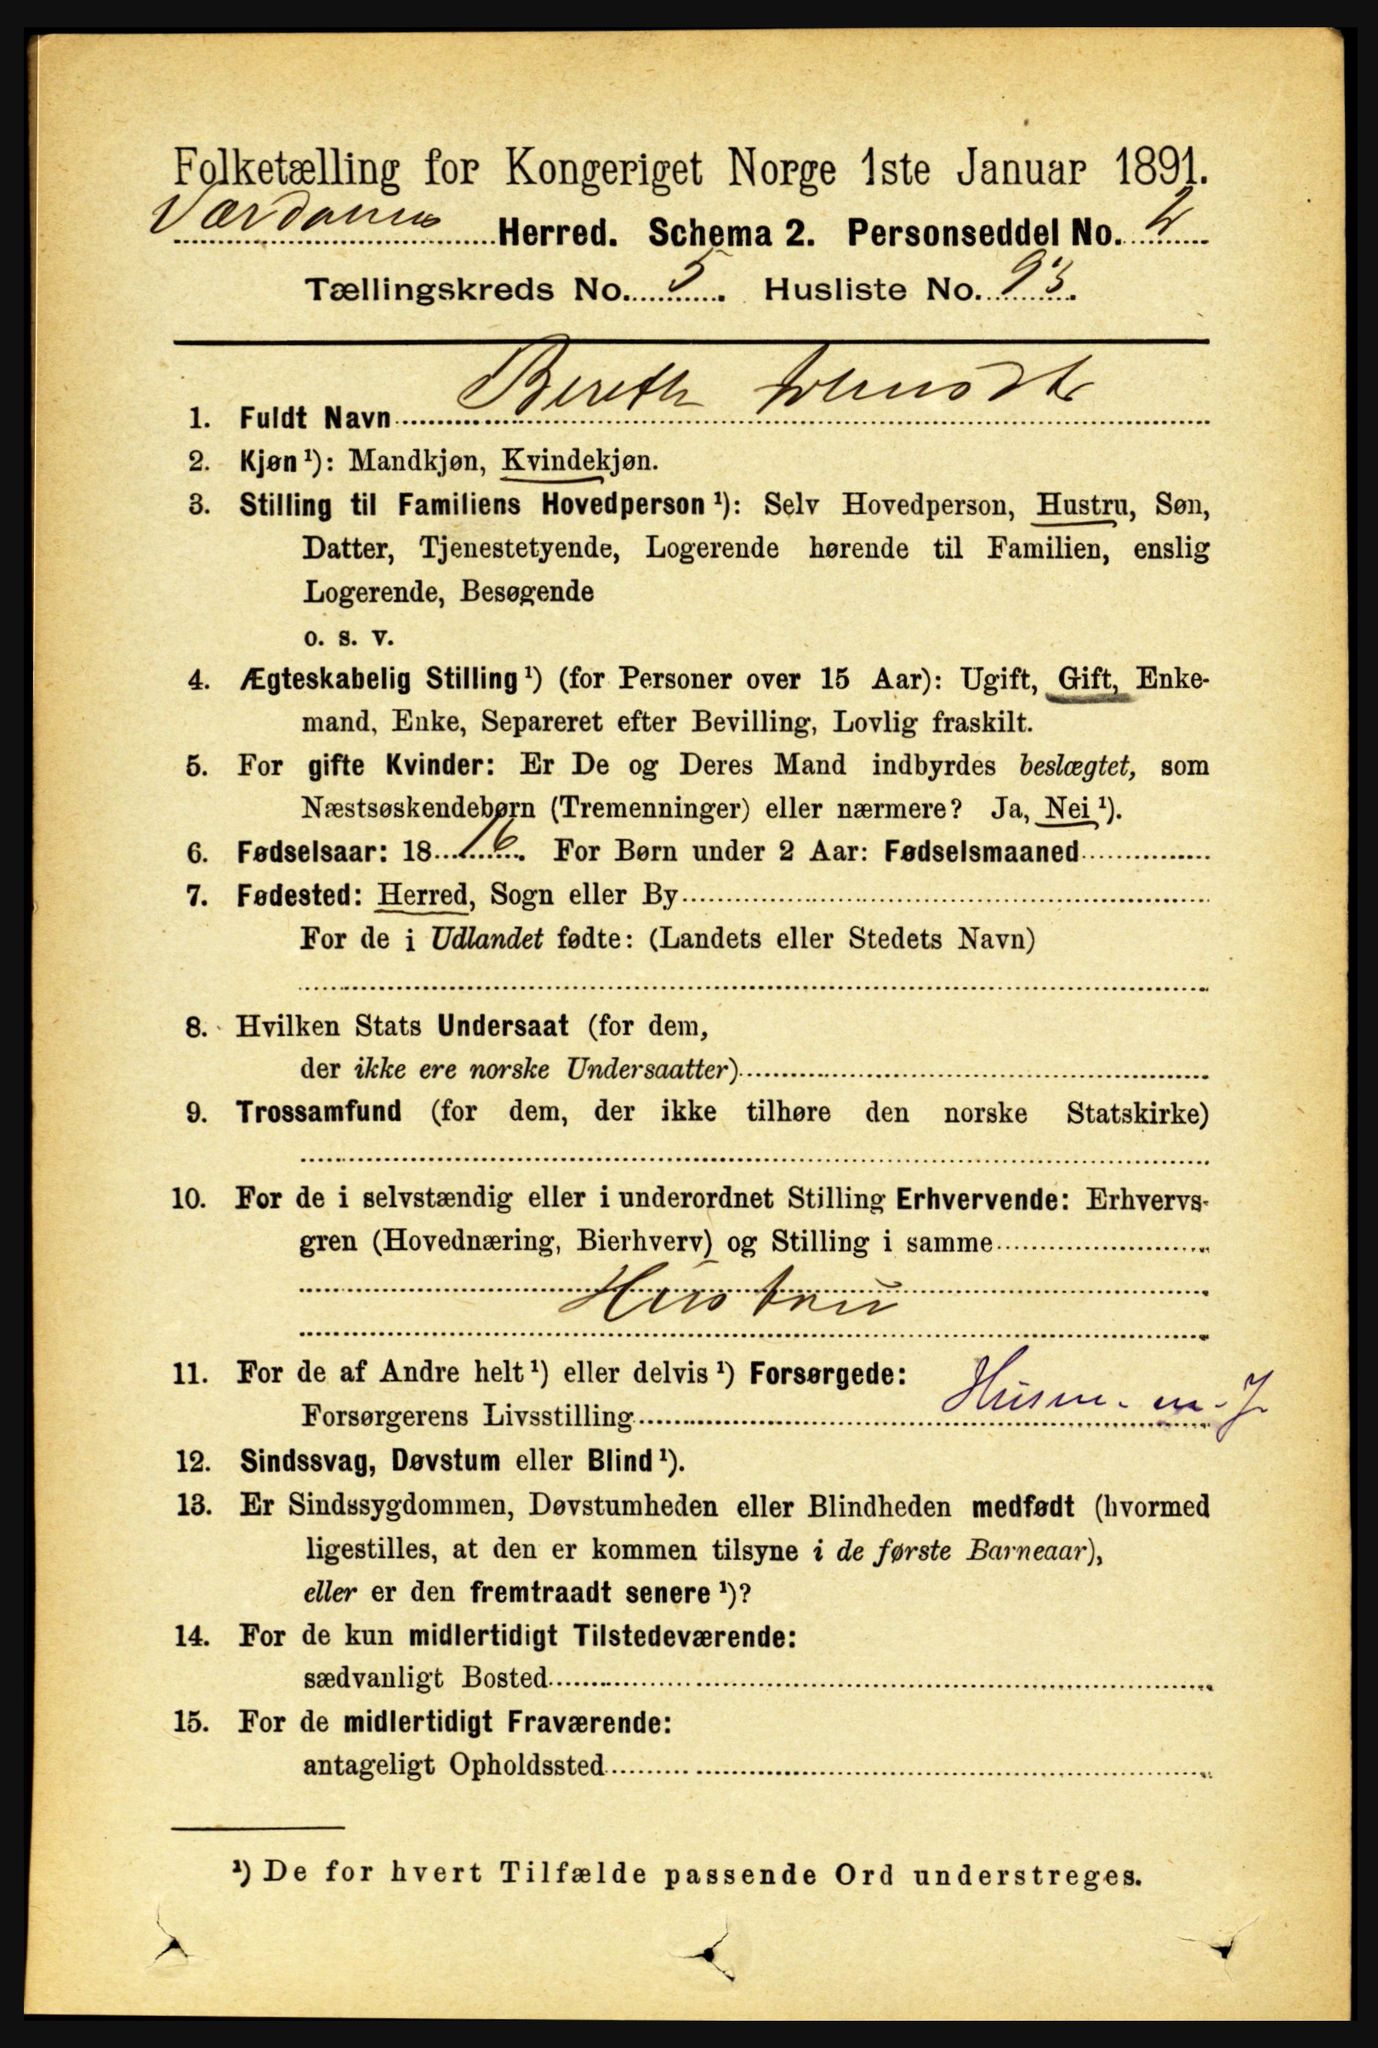 Folketælling for Kongeriget Norge 1ste Januar 1891.
Værdalens Herred. Schema 2. Personseddel No. 2
Tællingskreds No. 5. Husliste No. 93.
1. Fuldt Navn Bereth
2. Kjøn ¹): Mandkjøn, Kvindekjøn.
3. Stilling til Familiens Hovedperson ¹): Selv Hovedperson, Hustru, Søn,
Datter, Tjenestetyende, Logerende hørende til Familien, enslig
Logerende, Besøgende
o. s. v.
4. Ægteskabelig Stilling ¹) (for Personer over 15 Aar): Ugift, Gift, Enke-
mand, Enke, Separeret efter Bevilling, Lovlig fraskilt.
5. For gifte Kvinder: Er De og Deres Mand indbyrdes beslægtet, som
Næstsøskendebørn (Tremenninger) eller nærmere? Ja, Nei ¹).
6. Fødselsaar: 1816. For Børn under 2 Aar: Fødselsmaaned
7. Fødested: Herred, Sogn eller By
For de i Udlandet fødte: (Landets eller Stedets Navn)
8. Hvilken Stats Undersaat (for dem,
der ikke ere norske Undersaatter)
9. Trossamfund (for dem, der ikke tilhøre den norske Statskirke)
10. For de i selvstændig eller i underordnet Stilling Erhvervende: Erhvervs-
gren (Hovednæring, Bierhverv) og Stilling i samme
Hustru
11. For de af Andre helt ¹) eller delvis ¹) Forsørgede:
Forsørgerens Livsstilling Husm. m. J
12. Sindssvag, Døvstum eller Blind ¹).
13. Er Sindssygdommen, Døvstumheden eller Blindheden medfødt (hvormed
ligestilles, at den er kommen tilsyne i de første Barneaar),
eller er den fremtraadt senere ¹)?
14. For de kun midlertidigt Tilstedeværende:
sædvanligt Bosted
15. For de midlertidigt Fraværende:
antageligt Opholdssted
¹) De for hvert Tilfælde passende Ord understreges.